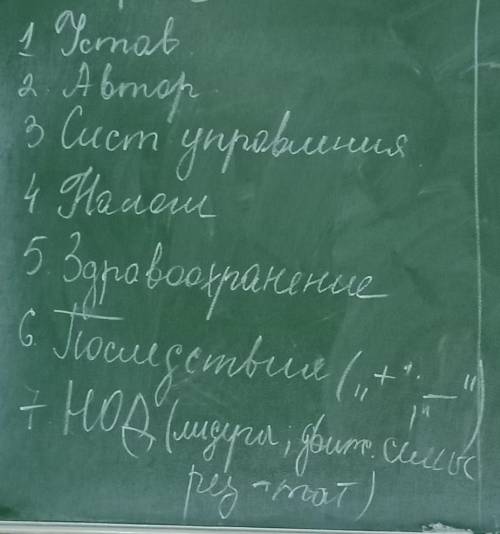 1 Устав
2. Автор
3 Сист управления
4 Налоги
5. Здравоохранение
6. Последствия („+“; „—“)
7 НОД (лидера; движ. силы
рез-тат)